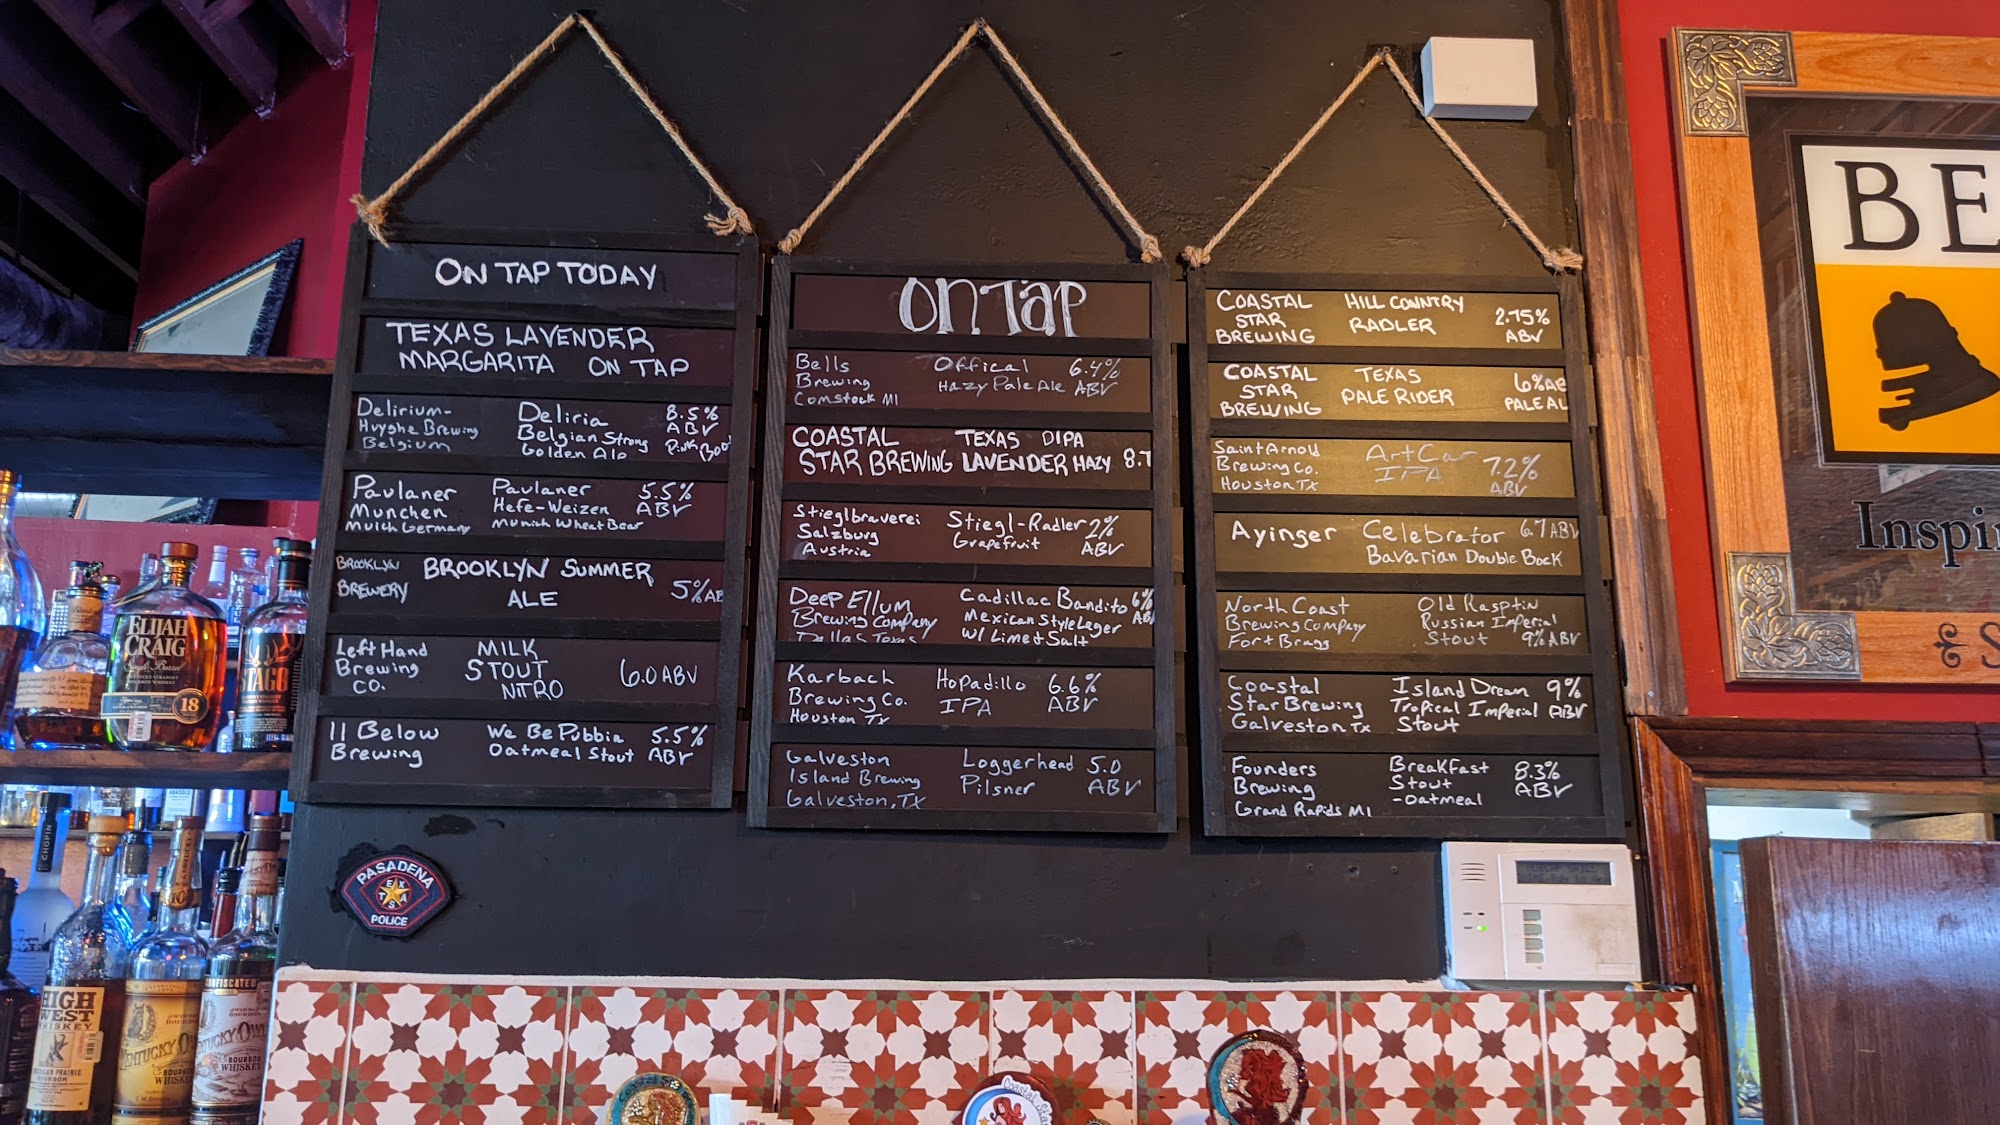 ON TAP TODAY
TEXAS LAVENDER
MARGARITA ON TAP
Delirium- Deliria 8.5%
Huyghe Brewing Belgian Strong ABV
Belgium Golden Ale Pink
Paulaner Paulaner 5.5%
Munchen Hefe-Weizen ABV
Munich Wheat Beer
BROOKLYN BROOKLYN SUMMER
BREWERY ALE 5% AB
Left Hand MILK
Brewing STOUT 6.0 ABV
CO. NITRO
11 Below We Be Pubbin 5.5%
Brewing Oatmeal Stout ABV
ON TAP
Bells Offical 6.4%
Brewing Hazy Pale Ale ABV
Comstock MI
COASTAL TEXAS DIPA
STAR BREWING LAVENDER HAZY 8.7
Stieglbrauerei Stiegl-Radler 2%
Salzburg Grapefruit ABV
Austria
Deep Ellum Cadillac Bandito 6%
Brewing Company Mexican Style Lager AB
Dallas Texas W/ Lime & Salt
Karbach Hopadillo 6.6%
Brewing Co. IPA ABV
Houston Tx
Galveston Loggerhead 5.0
Island Brewing Pilsner ABV
Galveston, TX
COASTAL HILL COUNTRY 2.75%
STAR RADLER ABV
BREWING
COASTAL TEXAS 6% AB
STAR PALE RIDER PALE AL
BREWING
Saint Arnold Art Car 7.2%
Brewing Co. IPA ABV
Houston TX
Ayinger Celebrator 6.7 ABV
Bavarian Double Bock
North Coast Old Rasptin
Brewing Company Russian Imperial
Fort Bragg Stout 9% ABV
Coastal Island Dream 9%
Star Brewing Tropical Imperial ABV
Galveston Tx Stout
Founders Breakfast 8.3%
Brewing Stout ABV
Grand Rapids MI -oatmeal
BE
Inspi
S
ELIJAH
CRAIG
Single Barrel
18
STAGG
CHOPIN
PASADENA
TEXAS
POLICE
HIGH
WEST
WHISKEY
AMERICAN PRAIRIE
BOURBON
KENTUCKY OWL
BOURBON
WHISKEY
CONFISCATED
KENTUCKY OWL
BOURBON
WHISKEY
Coastal S
Coastal Star